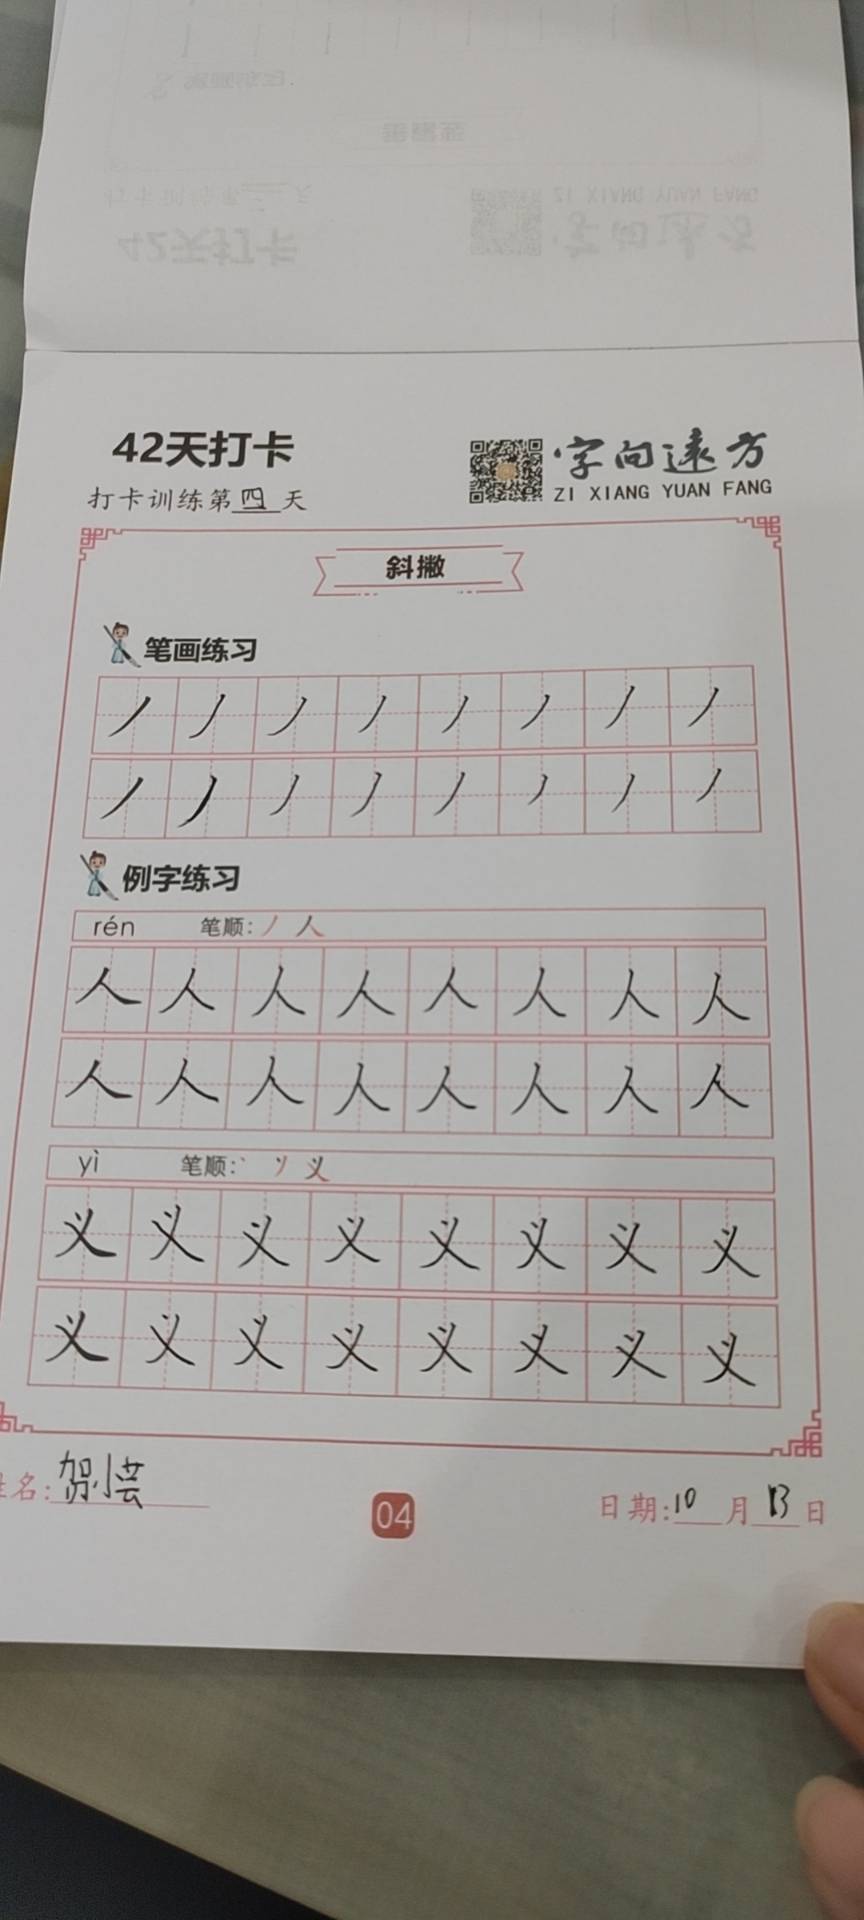 42天打卡
字向远方
打卡训练第四天
ZI XIANG YUAN FANG
斜撇
笔画练习
丿丿丿丿丿丿丿丿
丿丿丿丿丿丿丿丿
例字练习
rén 笔顺：丿 人
人人人人人人人人
人人人人人人人人
yì 笔顺：丶 丷 义
义义义义义义义义
义义义义义义义义
姓名：贺小芸
04
日期：10月13日